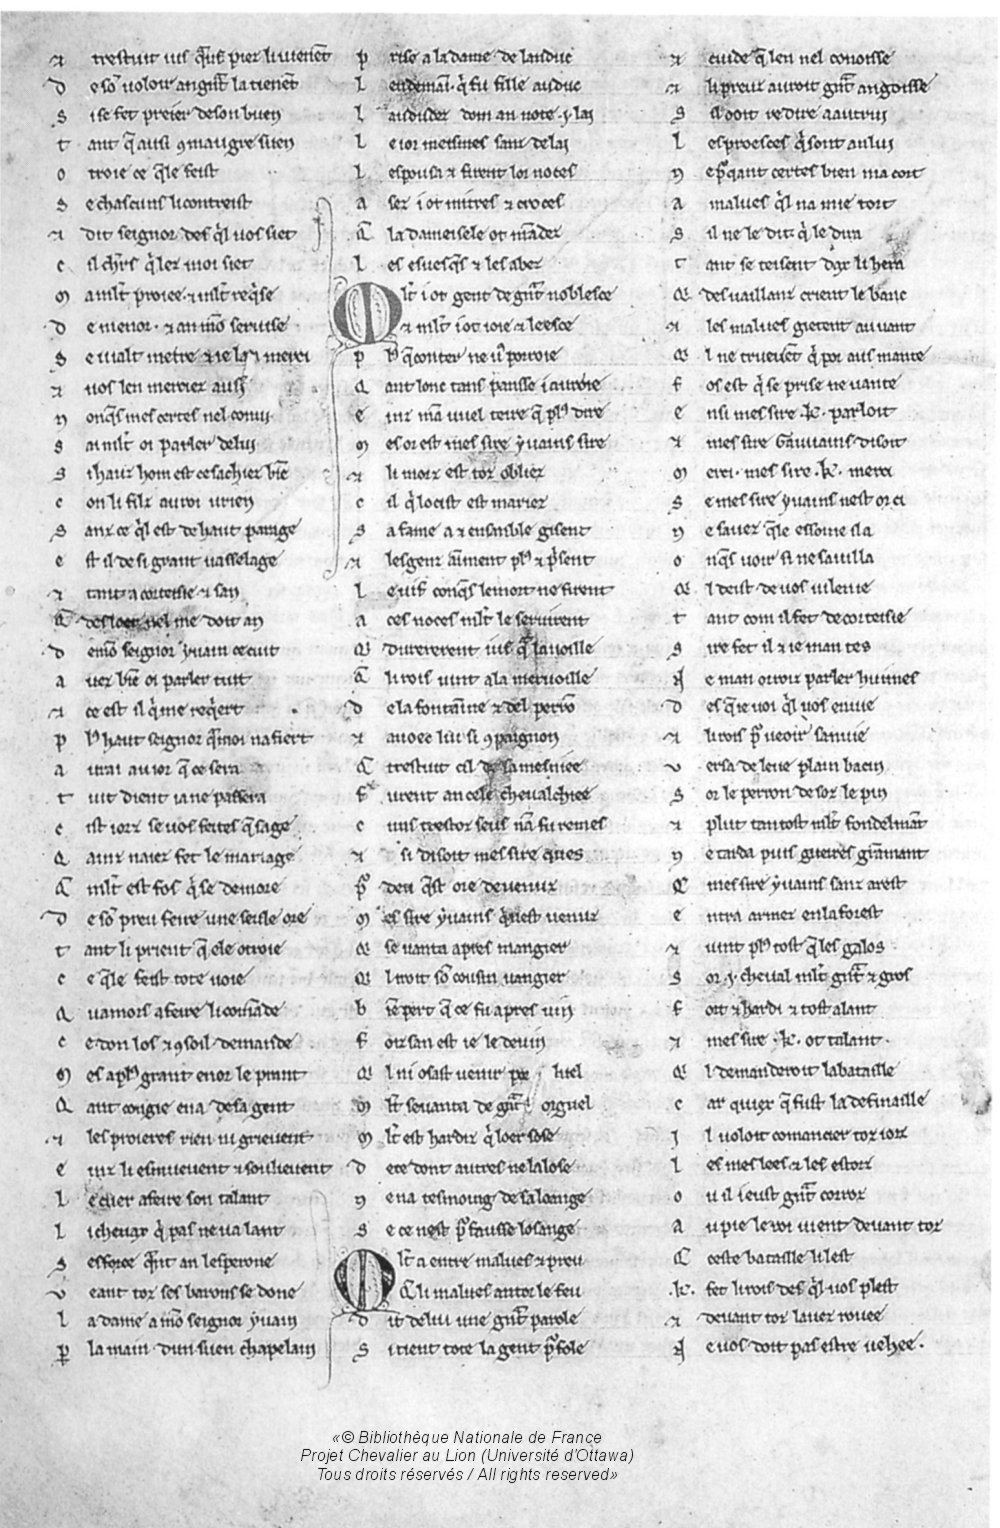 ⁊ trestuit ⁊ q̃ q̃s pier li vienẽt
D e sõ voloir an grãt la tienẽt
S i se fet preier de son buen
T ant q̃ ausi ꝯ maugre suen
O troie ce q̃le feist
S e chascuns li contreist
⁊ dit seignor des q̃l vos siet
C il chr̃s q̃ lez moi siet
M a ml̃t proiee ⁊ ml̃t req̃se
D e m'enor ⁊ an mõ servise
S e vialt metre ⁊ ie l'an merci
⁊ vos l'en merciez ausi
N onq̃s mes certes nel conui
S ai ml̃t oi parler de lui
S i hauz hom est ce sachiez biẽ
C on li filz au roi urien
S anz ce q̃l est de haut parage
E st il de si grant vasselage
⁊ tant a corteisie ⁊ san
Q̃ desloer nel me doit an
D emõ seignor yvain ce cuit
A vez biẽ oi parler tuit
⁊ ce est il q̃ me req̃ert
P lꝰ haut seignor q̃ moi n'afiert
A vrai au ior q̃ ce sera
T uit dient ia ne passera
C ist iorz se vos feites q̃ sage
Q ainz n'aiez fet le mariage
C ml̃t est fos q̃ se demore
D e sõ preu feire une seule ore
T ant li prient q̃ ele otroie
C e q̃le feist tote voie
Q uamors a feire li comãde
C e don los ⁊ ꝯsoil demande
M es a plꝰ grant enor le prant
Q ant congie en a de sa gent
⁊ les proieres rien n'i grievent
E inz li esmuevent ⁊ soulievent
L e cuer a feire son talant
L i chevax q̃ pas ne va lant
S esforce q̃nt an l'esperone
V eant toz ses barons se done
L a dame a mõ seignor yvain
P̱ la main d'un suen chapelain
P rise a la dame de landuc
L endemain q̃ fu fille au duc
L audunez dom an note .i. lai
L e ior meismes sanz delai
L espousa ⁊ firent lor noces
A sez i ot mitres ⁊ croces
Q̃ la dameisele ot mãdez
L es esvesq̃s ⁊ les abez
M l̃t i ot gent de grãt noblesce
⁊ ml̃t i ot ioie ⁊ leesce
P lꝰ q̃ conter ne vꝰ porroie
Q ant lonc tans pansse i avroie
E inz mã vuel teire q̃ plꝰ dire
M es or est mes sire yvains sire
⁊ li morz est toz obliez
C il q̃ l'ocist est mariez
S a fame a ⁊ ensanble gisent
⁊ les genz aiment plꝰ ⁊ prisent
L e vif c'onq̃s le mort ne firent
A ces noces ml̃t le servirent
Q̃ durerent iusq̃ la voille
Q̃ li rois vint a la mervoille
D e la fontainne ⁊ del perrõ
⁊ avoec lui si ꝯpaignon
C trestuit cil de sa mesniee
F urent an cele chevalchiee
C uns trestoz seus n'ã fu remes
⁊ si disoit mes sire ques
P̃ deu q̃ est ore devenuz
M es sire yvains q̃ n'est venuz
Q̃ se vanta apres mangier
Q̃ l iroit sõ cousin vangier
B iẽ pert q̃ ce fu apres vin
F oiz s'an est ie le devin
Q̃ l n'i osast venir por l'uel
M l̃t se vanta de grãt orguel
M l̃t est hardiz q̃ loer s'ose
D e ce dont autres ne l'alose
N e n'a tesmoing de sa loange
S e ce n'est p̃ fausse losange
M l̃t a entre malves ⁊ preu
Q̃ li malves antor le feu
D it de lui une grãt parole
S i tient tote la gent p̃ fole
⁊ cuide q̃ l'en nel conoisse
⁊ li preuz avroit grãt angoisse
S il ooit redire a autrui
L es proesces q̃ sont an lui
N e p̃qant certes bien m'acort
A malves q̃l n'a mie tort
S il ne le dit q̃ le dira
T ant se teisent dax li hera
Q̃ des vaillanz crient le banc
⁊ les malves gietent au vant
Q̃ l ne truevẽt q̃ por aus mante
F os est q̃ se prise ne vante
E nsi mes sire .K. parloit
⁊ mes sire Gauvains disoit
M erci. mes sire .K. merci
S e mes sire yvains n'est or ci
N e savez q̃le essoine il a
O nq̃s voir si ne s'avilla
Q̃ l deist de vos vilenie
T ant com il a fet de corteisie
S ire fet il ⁊ ie m'an tes
N e m'an orroiz parler huimes
D es q̃ ie voi q̃l vos enuie
⁊ li rois p̃ veoir la pluie
V ersa de l'eve plain bacin
S or le perron desoz le pin
⁊ plut tantost ml̃t fondelmãt
N e tarda puis gueires grãmant
Q̃ mes sire yvains sanz arest
E ntra armez en la forest
⁊ vint plꝰ tost q̃ les galos
S or .i. cheval ml̃t grãt ⁊ gros
F ort ⁊ hardi ⁊ tost alant
⁊ mes sire .K. ot talant
Q̃ l demanderoit la bataille
C ar quiex q̃ fust la definaille
I l voloit comancier toz iorz
L es meslees ⁊ les estorz
O u il i eust grãt corroz
A u pie le roi vient devant toz
Q̃ ceste bataille li lest
.K. fet li rois des q̃l vos plest
⁊ devant toz l'avez rovee
N e vos doit pas estre vehee.
«© Bibliothèque Nationale de France
Projet Chevalier au Lion (Université d'Ottawa)
Tous droits réservés / All rights reserved»